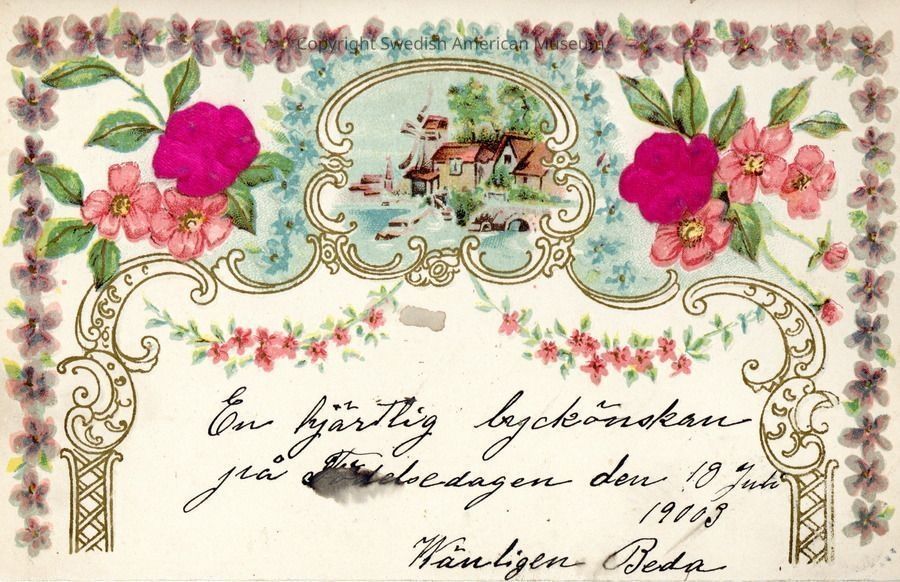 Copyright Swedish American Museum
En hjärtlig lyckönskan
på Födelsedagen den 18 Juli
19003
Wänligen Beda